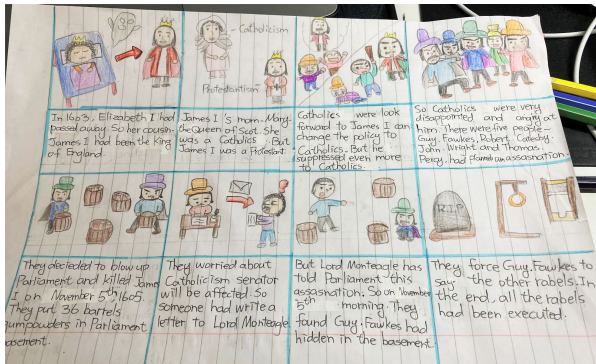 Catholicism
Protestantism
In 1603, Elizabeth I had
passed away. So her cousin-
James I had been the king
of England.
James I's mom-Mary.
the Queen of Scot. She
was a Catholics. But
James I was a Protestant.
Catholics were look
forward to James I can
change the policy to
Catholics. But he
suppressed even more
to Catholics.
So Catholics were very
disappointed and angry at
him. There were five people-
Guy. Fawkes, Robert. Catesby.
John. Wright and Thomas.
Percy. had planned an assasnation.
R.I.P
They decieded to blow up
Parliament and killed James
I on November 5th 1605.
They put 36 barrels
gumpowders in Parliament
basement.
They worried about
Catholicism senator
will be affected. So
someone had write a
letter to Lord Monteagle.
But Lord Monteagle has
told Parliament this
assasnation. So on November
5th morning. They
found Guy. Fawkes had
hidden in the basement.
They force Guy. Fawkes to
say the other rabels. In
the end, all the rabels
had been executed.